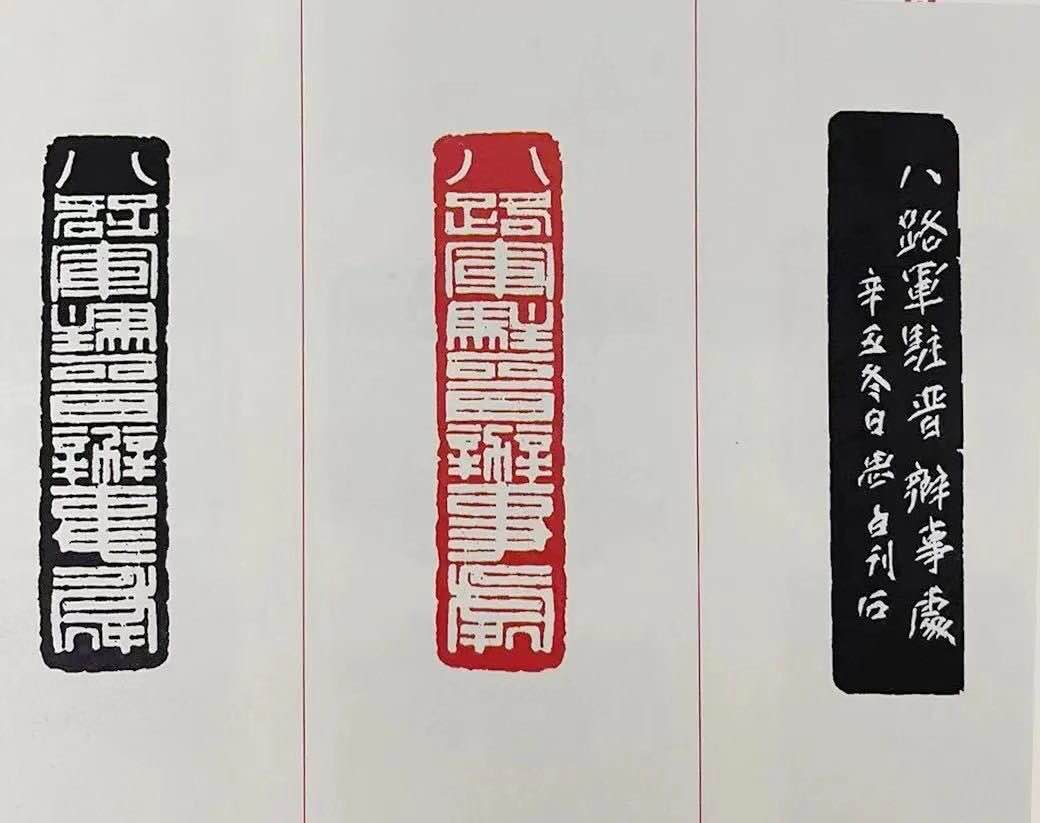 八路軍駐晉辦事處
八路軍駐晉辦事處
八路軍駐晉辦事處
辛 冬日 白刊石